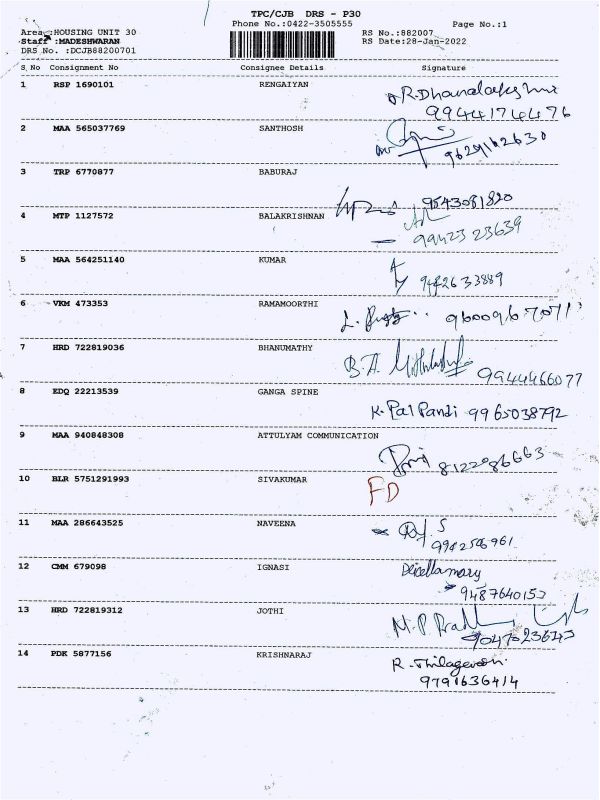 TPC/CJB DRS - P30
Phone No.:0422-3505555
Page No.:1
Area :HOUSING UNIT 30
RS No.:882007
Staff :MADESHWARAN
RS Date:28-Jan-2022
DRS No. :DCJB88200701
S.No Consignment No Consignee Details Signature
1 RSP 1690101 RENGAIYAN
R.Dhanalakshmi
9944174476
2 MAA 565037769 SANTHOSH
9629162630
3 TRP 6770877 BABURAJ
9543081820
4 MTP 1127572 BALAKRISHNAN
99423 23639
5 MAA 564251140 KUMAR
9442633889
6 VKM 473353 RAMAMOORTHI
9600967071
7 HRD 722819036 BHANUMATHY
9944466077
8 EDQ 22213539 GANGA SPINE
K. Pal Pandi 9965038792
9 MAA 940848308 ATTULYAM COMMUNICATION
8122086663
10 BLR 5751291993 SIVAKUMAR
FD
11 MAA 286643525 NAVEENA
12 CMM 679098 IGNASI
9487640153
13 HRD 722819312 JOTHI
14 PDK 5877156 KRISHNARAJ
R. Thilagavan
9791636414